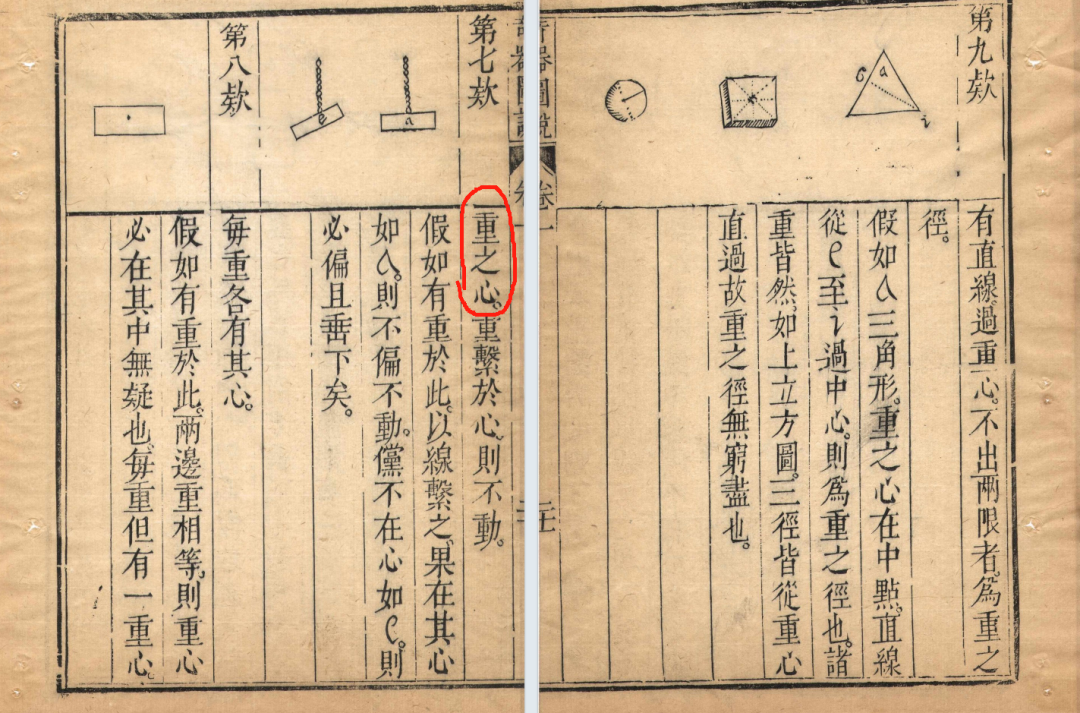 第七欵
a
e
重之心。重繫於心。則不動。
假如有重於此。以線繫之。果在其心
如a。則不偏不動。儻不在心如e。則
必偏且垂下矣。
第八欵
每重各有其心。
假如有重於此。兩邊重相等。則重心
必在其中無疑也。每重但有一重心。
奇器圖說 卷一
第九欵
a
i
有直線。過重心。不出兩限者。爲重之
徑。
假如a三角形。重之心在中點。直線
從e至i過中心。則爲重之徑也。諸
重皆然。如上立方圖。三徑皆從重心
直過故重之徑無窮盡也。